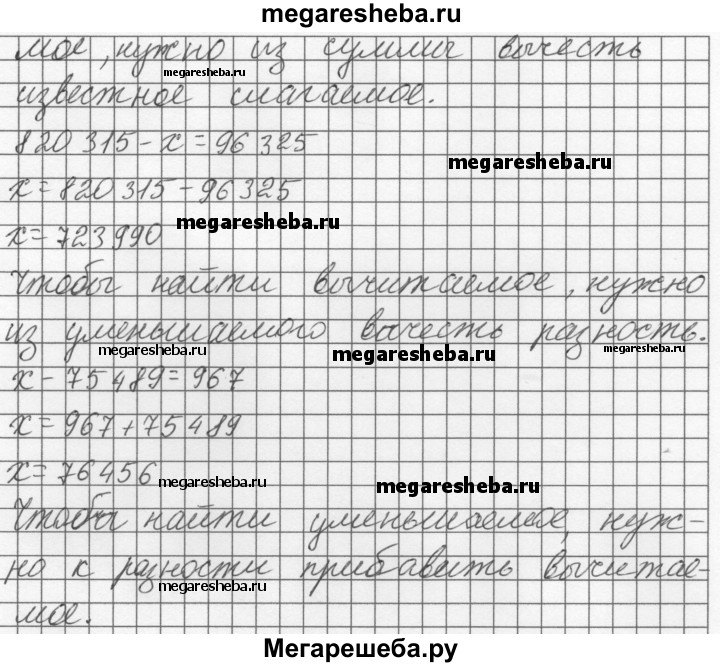 megaresheba.ru
мое, нужно из суммы вычесть
megaresheba.ru
известное слагаемое.
820 315 - x = 96 325
megaresheba.ru
x = 820 315 - 96 325
megaresheba.ru
x = 723 990
Чтобы найти вычитаемое, нужно
из уменьшаемого вычесть разность.
megaresheba.ru megaresheba.ru megaresheba.ru
x - 75 489 = 967
x = 967 + 75 489
x = 76 456
megaresheba.ru megaresheba.ru
Чтобы найти уменьшаемое, нуж-
но к разности прибавить вычитае-
megaresheba.ru
мое.
Мегарешеба.ру